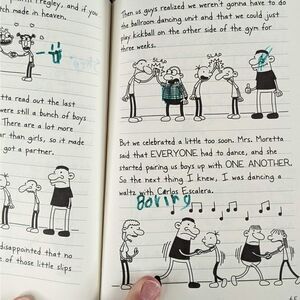 Fregley, and if you
tch made in heaven.
tta read out the last
were still a bunch of boys
There are a lot more
r than girls, so it made
got a partner.
disappointed that no
e of those little slips
Then us guys realized we weren't gonna have to do
the ballroom dancing unit and that we could just
play kickball on the other side of the gym for
three weeks.
SLAP
SLAP
But we celebrated a little too soon. Mrs. Moretta
said that EVERYONE had to dance, and she
started pairing us boys up with ONE ANOTHER.
So the next thing I knew, I was dancing a
waltz with Carlos Escalera.
Boring